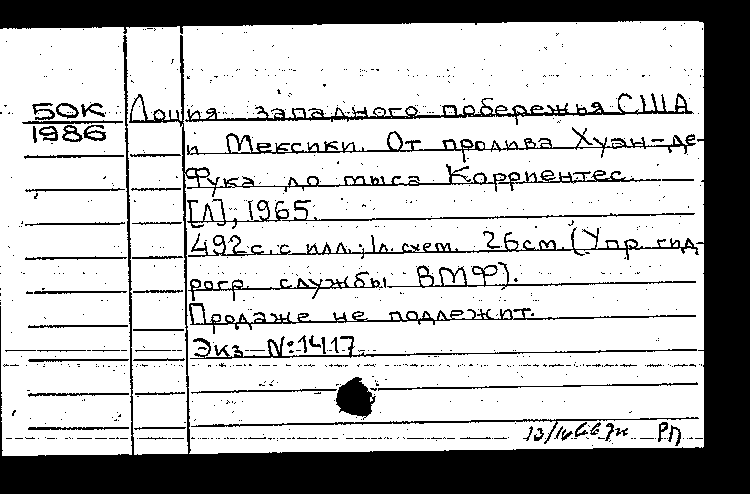 50К Лоция западного побережья США
1986 и Мексики. От пролива Хуан-де-
Фука до мыса Корриентес.
[Л], 1965.
492 с. с илл.; 1л. схем. 26 см. (Упр. гид-
рогр. службы ВМФ).
Продаже не подлежит.
Экз № 1417
РП